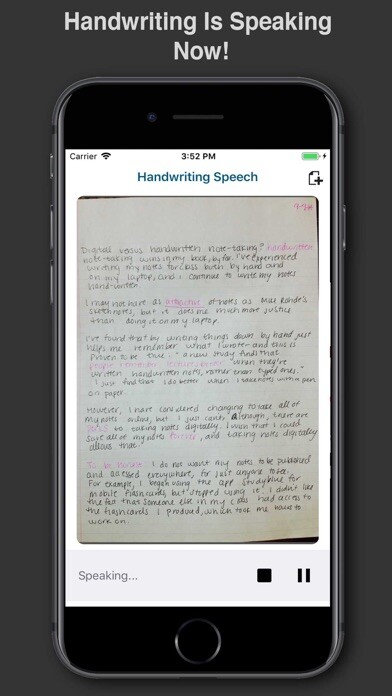 Handwriting Is Speaking
Now!
Carrier
3:52 PM
Handwriting Speech
9-9-14
Digital versus handwritten note-taking? handwritten
note-taking wins in my book, by far. I've experienced
writing my notes for class both by hand and
on my laptop, and I continue to write my notes
hand-written.
I may not have as attractive of notes as Mike Rohde's
sketchnotes, but it does me much more justice
than doing it on my laptop.
I've found that by writing things down by hand just
helps me remember what I wrote— and this is
proven to be true. "a new study finds that
people remember lectures better when they're
written handwritten notes, rather than typed ones."
I just find that I do better when I take notes with a pen
on paper.
However, I have considered changing to take all of
my notes online, but I just can't, although, there are
to taking notes digitally. I wish that I could
save all of my notes forever, and taking notes digitally
allows that.
To be honest I do not want my notes to be published
and assessed everywhere, for just anyone to see.
For example, I began using the app StudyBlue for
mobile flashcards, but stopped using it. I didn't like
the fact that someone else in my class had access to
the flashcards I produced, which took me hours to
work on.
Speaking...